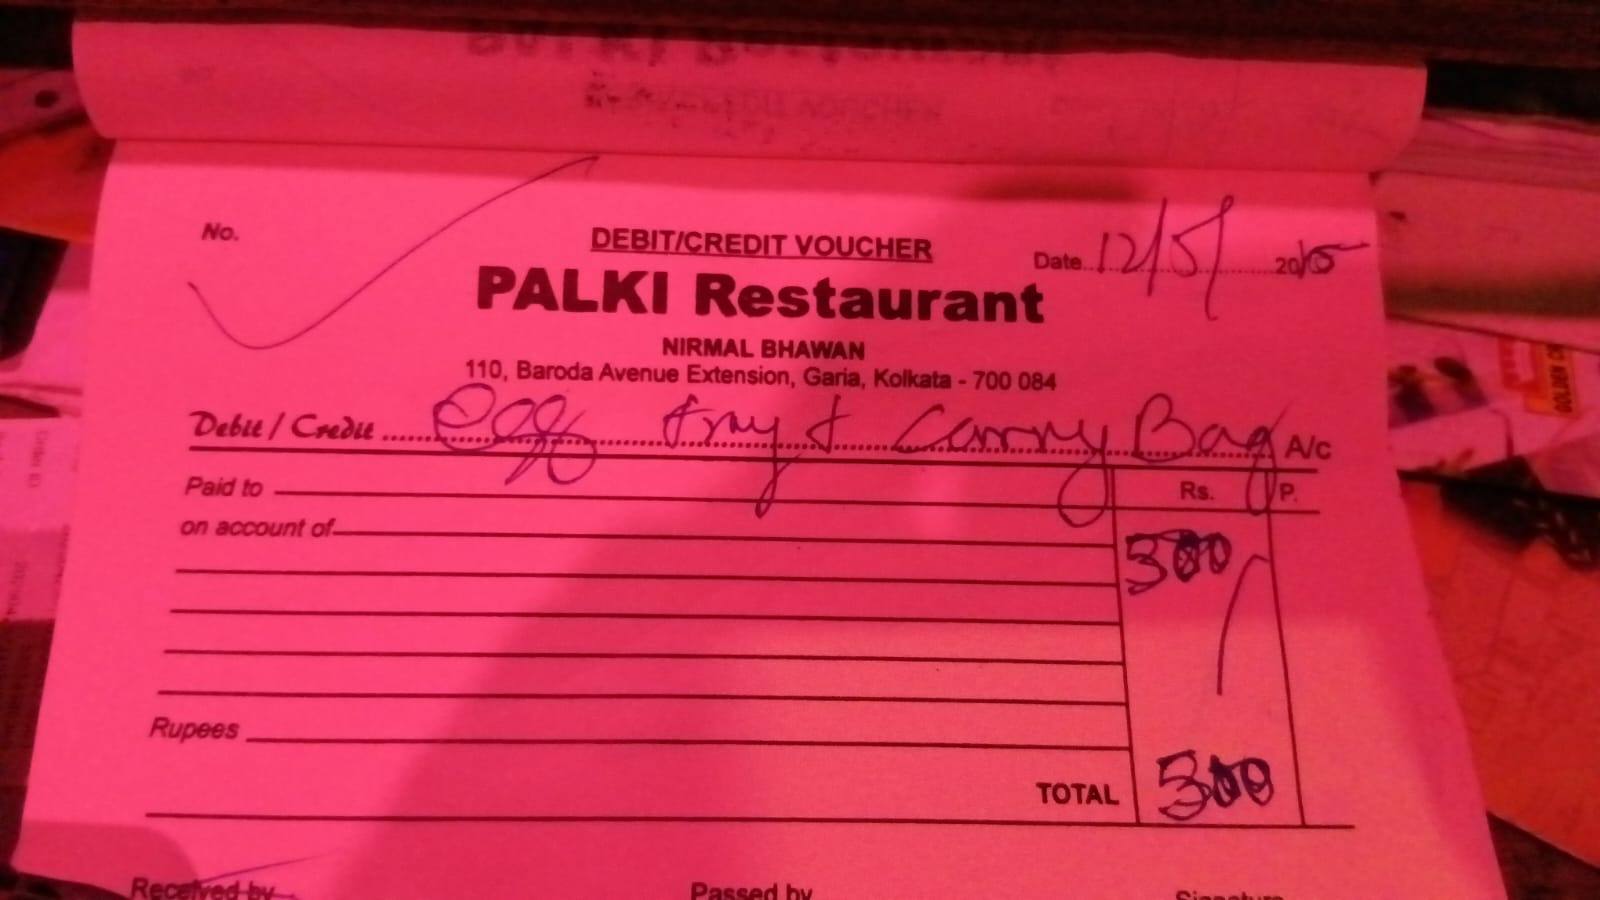 No.
DEBIT/CREDIT VOUCHER
Date 12/5/ 20
PALKI Restaurant
NIRMAL BHAWAN
110, Baroda Avenue Extension, Garia, Kolkata - 700 084
Debit / Credit Egg Tray & Carry Bag A/c
Paid to Rs. P.
on account of
300
Rupees
TOTAL 300
Received by Passed by Signature